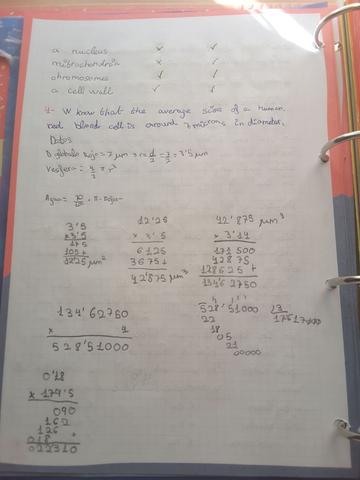 a nucleus x ✓
mitochondria x ✓
chromosomes ✓ ✓
a cell wall ✓ ✓
4- W know that the average size of a human
red blood cell is around 7 microns in diameter.
Datos
D globulo Rojo = 7 µm → r = d/2 = 7/2 = 3'5 µm
Vesfera = 4/3 π r³
3'5
x 3'5
175
105+
12'25 µm²
12'25
x 3'5
6125
3675+
42'875 µm³
42'875 µm³
x 3'14
171500
42875
128625+
134'62750
134'62750
x 4
528'51000
528'51000
22
18
05
21
00000
0'18
x 179'5
090
162
126 +
018
022310